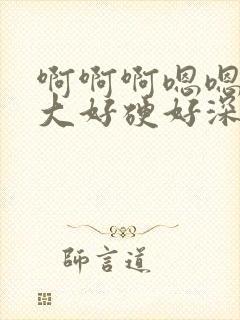 啊啊啊嗯嗯
大好硬好深
師言道